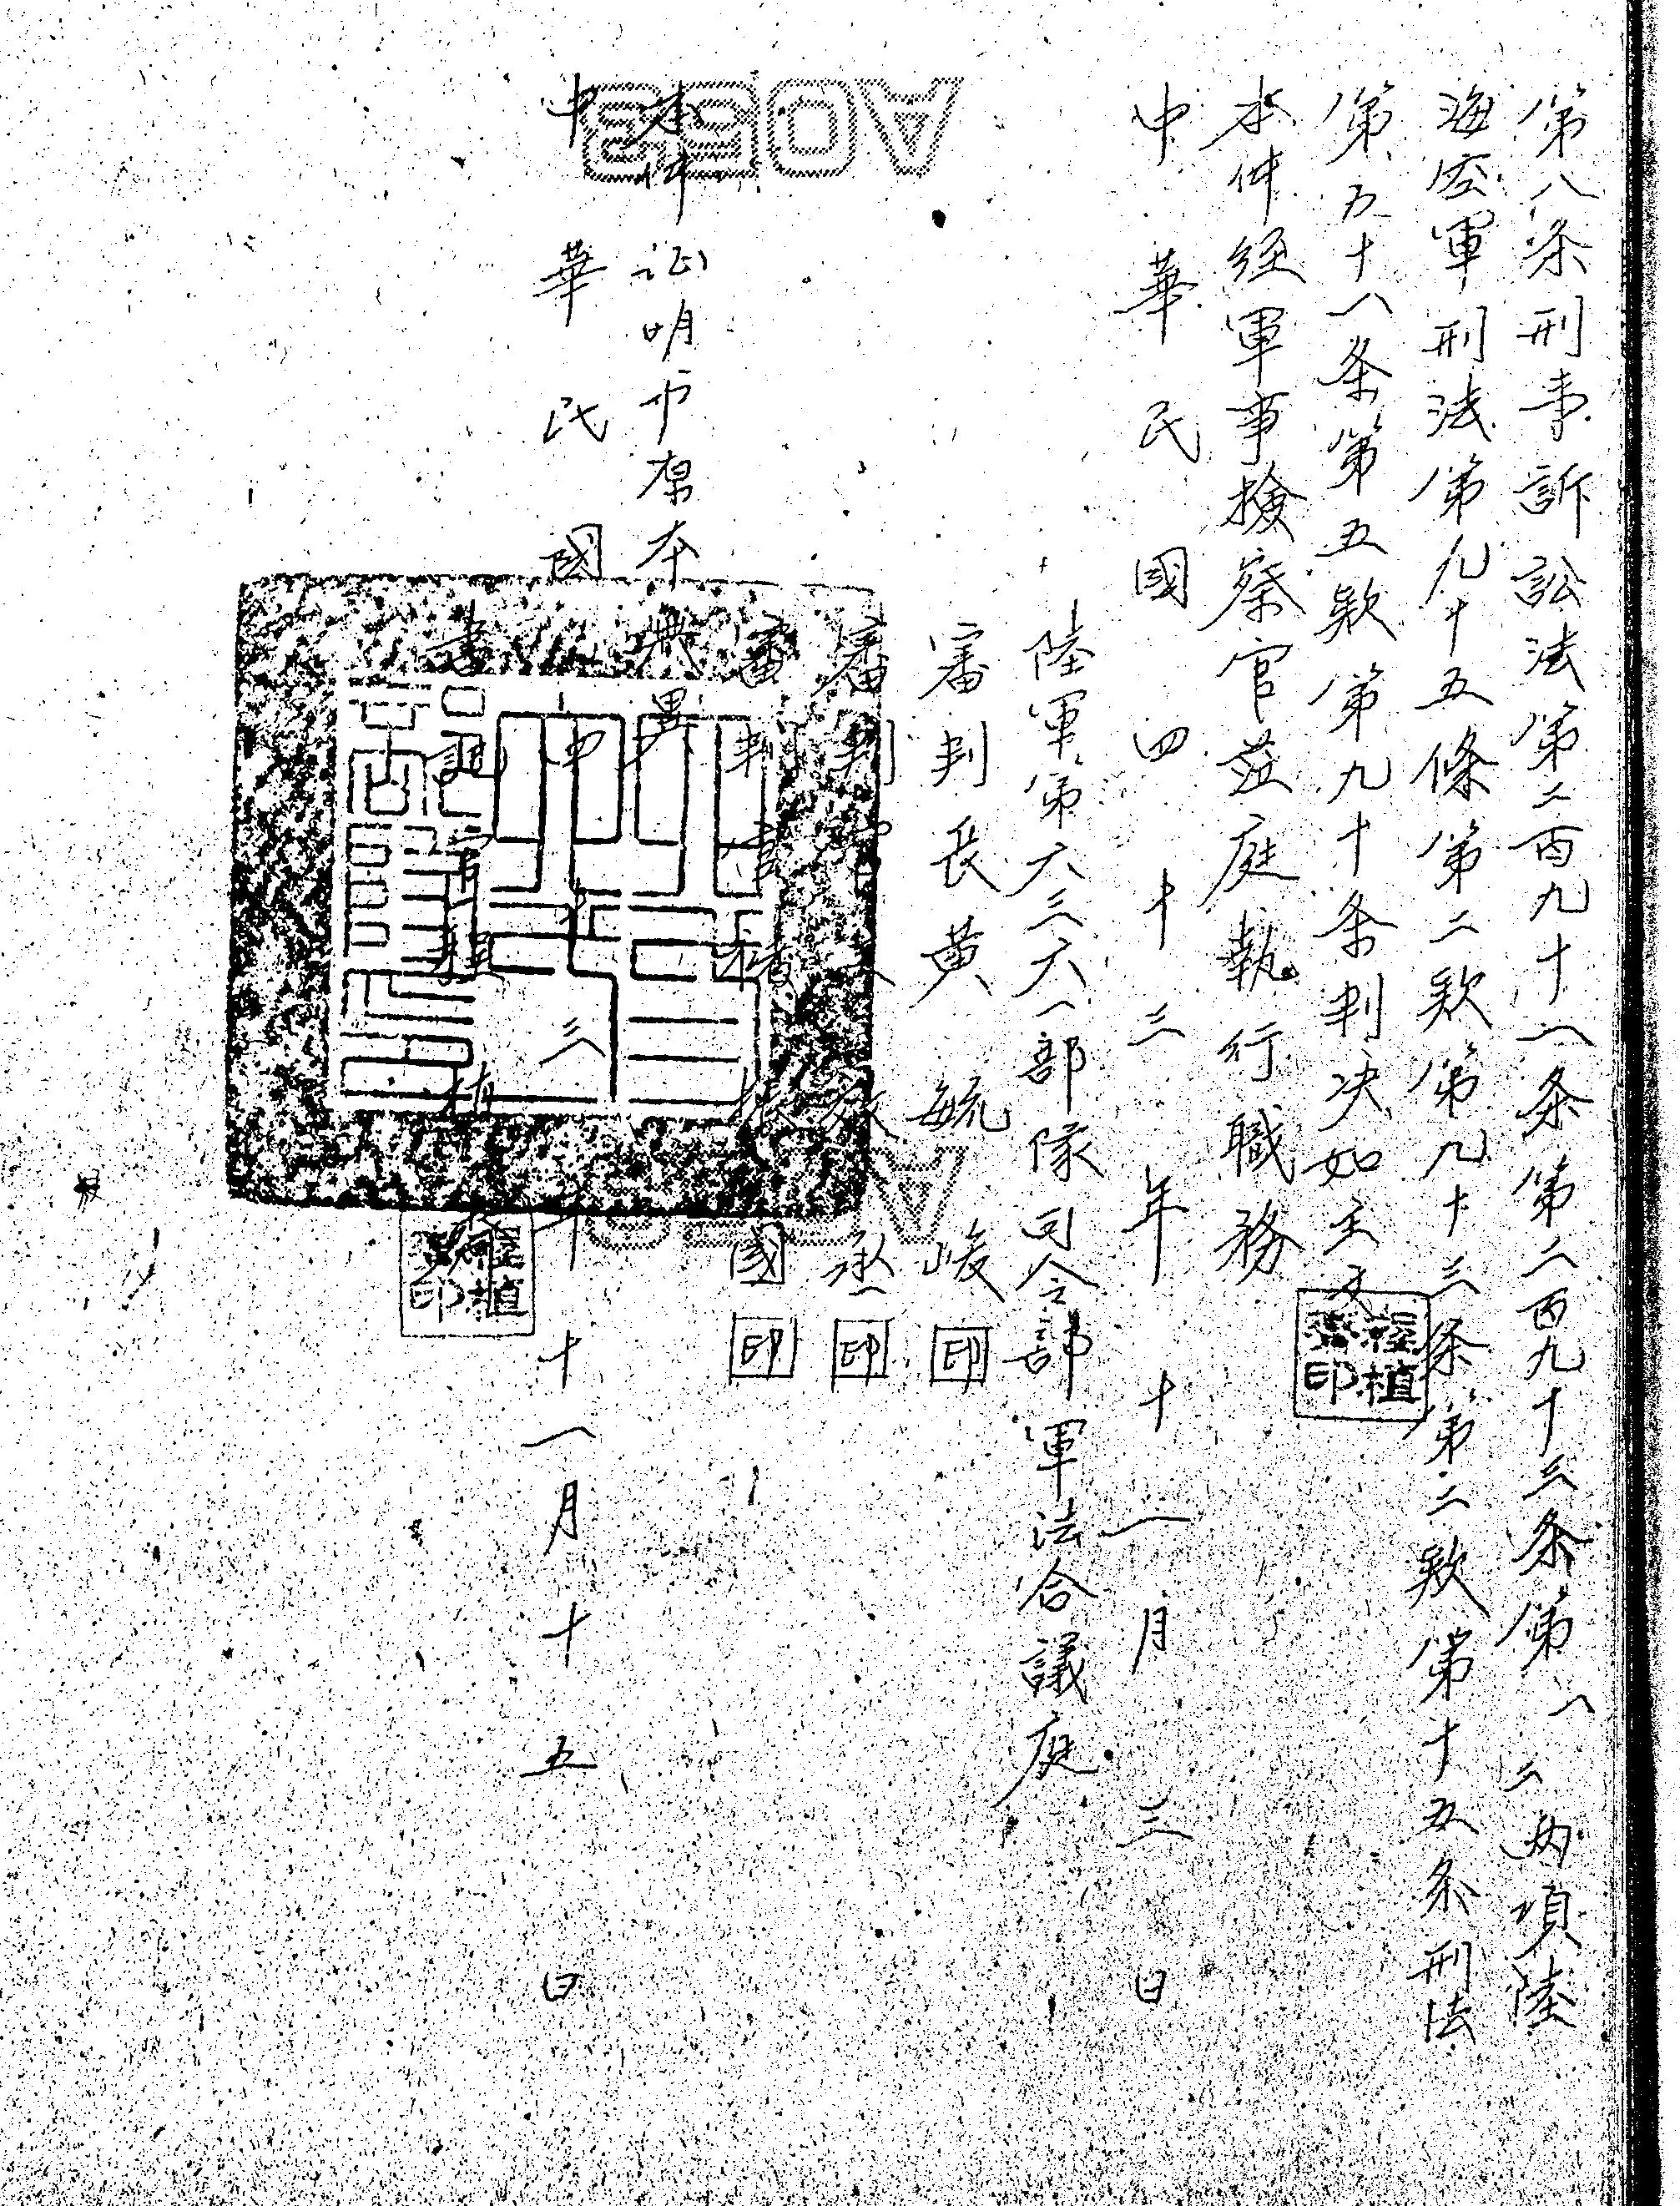 第八条刑事訴訟法第二百九十一条第二百九十三条第一二兩項陸
海空軍刑法第九十五條第二款第九十三条第二款第十五条刑法
第五十八条第五款第九十条判决如主文
本件經軍事檢察官蒞庭執行職務
中華民國四十三年十一月三日
陸軍第六三六一部隊司令部軍法合議庭
審判長黃毓峻印
審判官 承印
審判官 振國印
本件証明与原本無異
中華民國四十三年十一月十五日
書記官程植
程植
印
程植
印